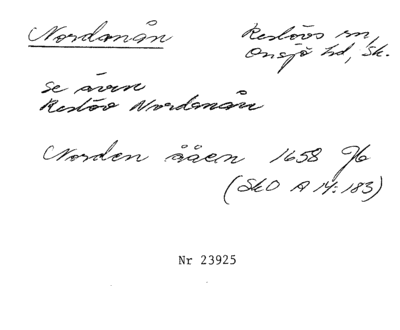 Nordanån
Reslövs sn,
Onsjö hd, Sk.
se även
Reslöv Nordanån
Norden ååen 1658 Jb
(SkO A 14:183)
Nr 23925